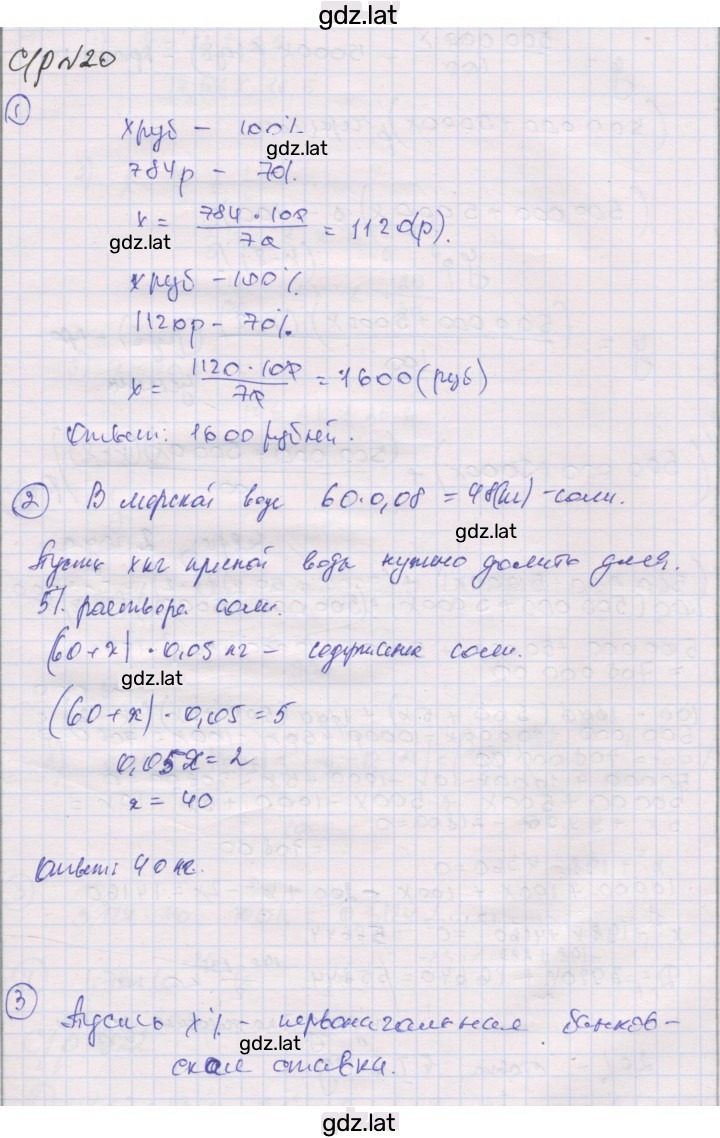 gdz.lat
С/р №20
1
x руб - 100%
gdz.lat
784р - 70%.
x = 784·100/70 = 1120(р).
gdz.lat
x руб - 100%
1120р - 70%.
x = 1120·100/70 = 1600(руб)
Ответ: 1600 рублей.
2 В морской воде 60·0,08 = 48(кг) - соли.
gdz.lat
Пусть x кг пресной воды нужно долить для
5% раствора соли.
(60+x)·0,05 кг - содержание соли.
gdz.lat
(60+x)·0,05=5
0,05x=2
x = 40
Ответ: 40 кг.
3 Пусть x% - первоначальная банков-
gdz.lat
ская ставка.
gdz.lat